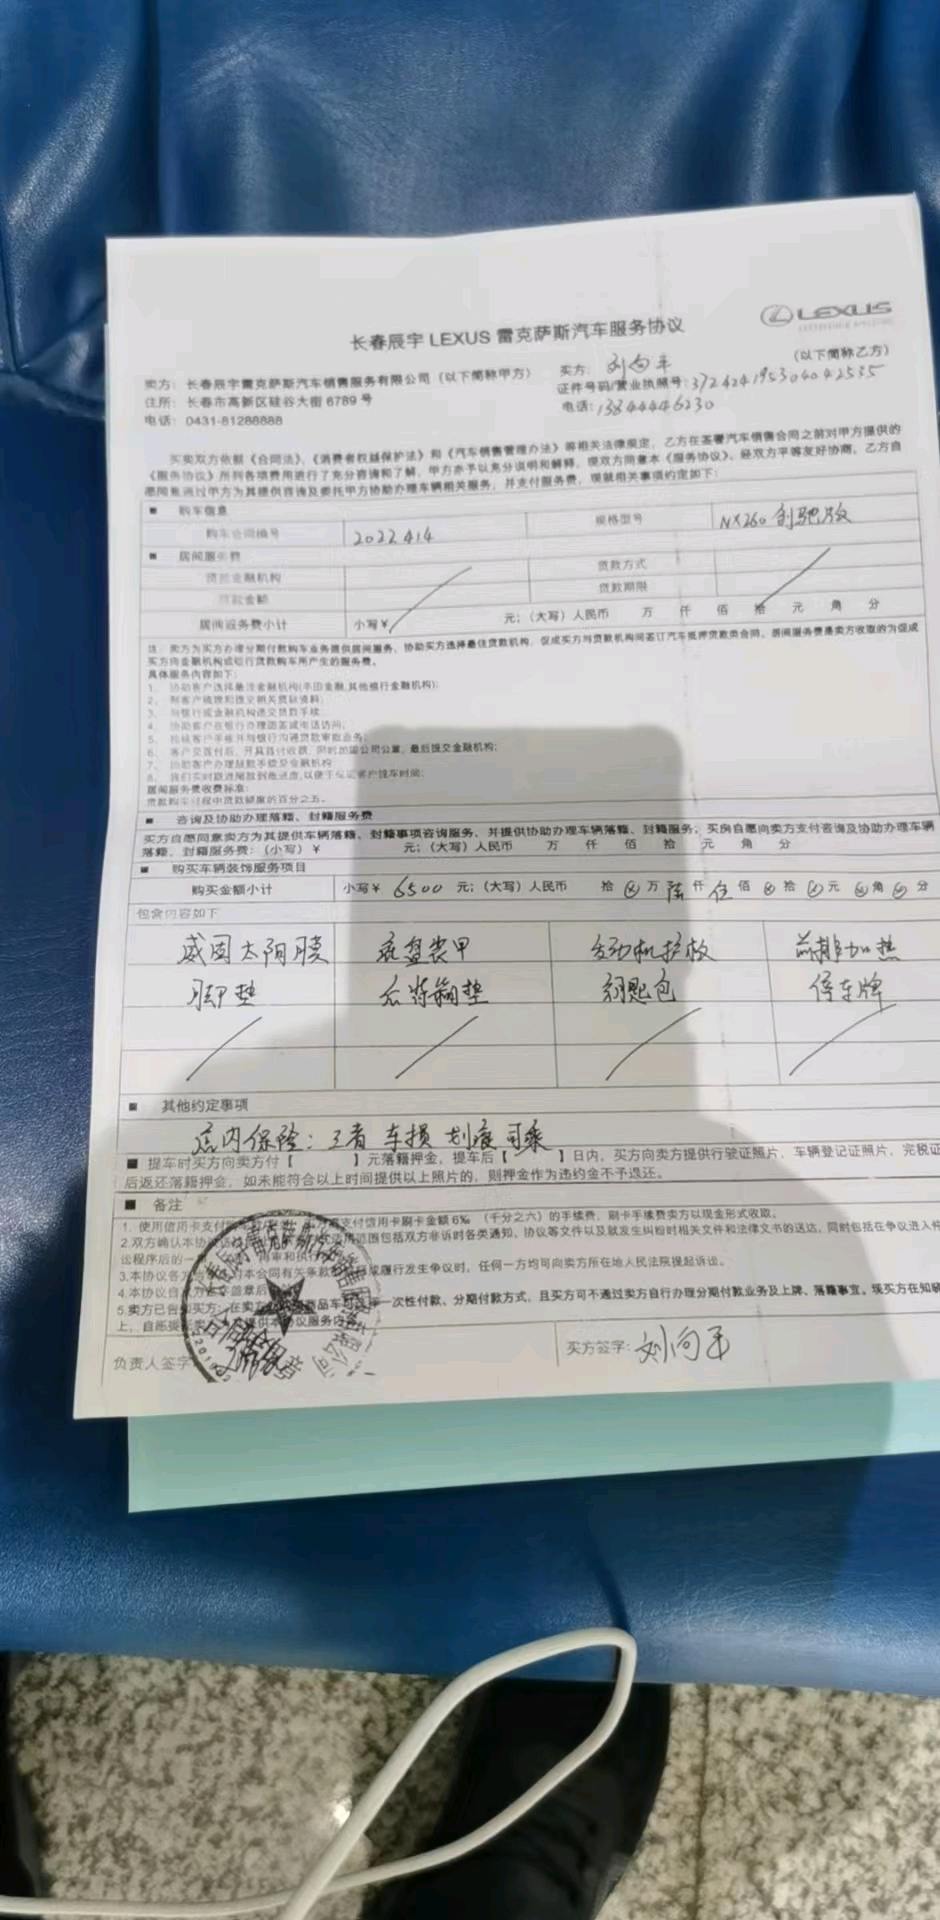 LEXUS
长春辰宇 LEXUS 雷克萨斯汽车服务协议
卖方：长春辰宇雷克萨斯汽车销售服务有限公司（以下简称甲方）
买方：刘向平 （以下简称乙方）
住所：长春市高新区硅谷大街 6789 号
证件号码/营业执照号：372424195304042535
电话：0431-81288888
电话：13844446230
买卖双方依据《合同法》、《消费者权益保护法》和《汽车销售管理办法》等相关法律规定，乙方在签署汽车销售合同之前对甲方提供的
《服务协议》所列各项费用进行了充分咨询和了解，甲方亦予以充分说明和解释，现双方同意本《服务协议》，经双方平等友好协商，乙方自
愿同意通过甲方为其提供咨询及委托甲方协助办理车辆相关服务，并支付服务费，现就相关事项约定如下：
■ 购车信息
购车合同编号 2022414 规格型号 NX260 创驰版
■ 居间服务费
贷款金融机构 贷款方式
贷款金额 贷款期限
居间服务费小计 小写¥ 元；（大写）人民币 万 仟 佰 拾 元 角 分
注：卖方为买方办理分期付款购车业务提供居间服务，协助买方选择最佳贷款机构，促成买方与贷款机构间签订汽车抵押贷款类合同，居间服务费是卖方收取的为促成
买方向金融机构或银行贷款购车所产生的服务费。
具体服务内容如下：
1、 协助客户选择最佳金融机构(丰田金融,其他银行金融机构)；
2、 帮客户梳理和提交相关贷款资料；
3、 向银行或金融机构递交贷款手续；
4、 协助客户在银行办理面签或电话访问；
6、 客户交首付后，开具首付收据，同时加盖公司公章，最后提交金融机构；
7、 协助客户办理放款手续及金融机构
8、 我们实时跟进尾款到账进度,以便于保证客户提车时间；
居间服务收费标准：
贷款购车过程中贷款额度的百分之五。
■ 咨询及协助办理落籍、封籍服务费
买方自愿同意卖方为其提供车辆落籍、封籍事项咨询服务，并提供协助办理车辆落籍、封籍服务；买房自愿向卖方支付咨询及协助办理车辆
落籍，封籍服务费：（小写）¥ 元；（大写）人民币 万 仟 佰 拾 元 角 分
■ 购买车辆装饰服务项目
购买金额小计 小写¥ 6500 元；（大写）人民币 拾 万 陆 仟 伍 佰 拾 元 角 分
包含内容如下
威固太阳膜 底盘装甲 发动机护板 前排加热
脚垫 后背箱垫 钥匙包 停车牌
■ 其他约定事项
店内保险：三者 车损 划痕 司乘
■ 提车时买方向卖方付【 】元落籍押金，提车后【 】日内，买方向卖方提供行驶证照片，车辆登记证照片，完税证
后返还落籍押金，如未能符合以上时间提供以上照片的，则押金作为违约金不予退还。
■ 备注
1. 使用信用卡支付 支付信用卡刷卡金额 6‰ （千分之六）的手续费，刷卡手续费卖方以现金形式收取。
2.双方确认本协议 范围包括双方非诉时各类通知、协议等文件以及就发生纠纷时相关文件和法律文书的送达，同时包括在争议进入仲
讼程序后的一
3.本协议各方 对本合同有关条款 或履行发生争议时，任何一方均可向卖方所在地人民法院提起诉讼。
4.本协议自 盖章后
5.卖方已告知买方：在卖 商品车可 一次性付款、分期付款方式，且买方可不通过卖方自行办理分期付款业务及上牌、落籍事宜。现买方在知晓
上，自愿委 提供本协议服务内容
负责人签字： 买方签字：刘向平